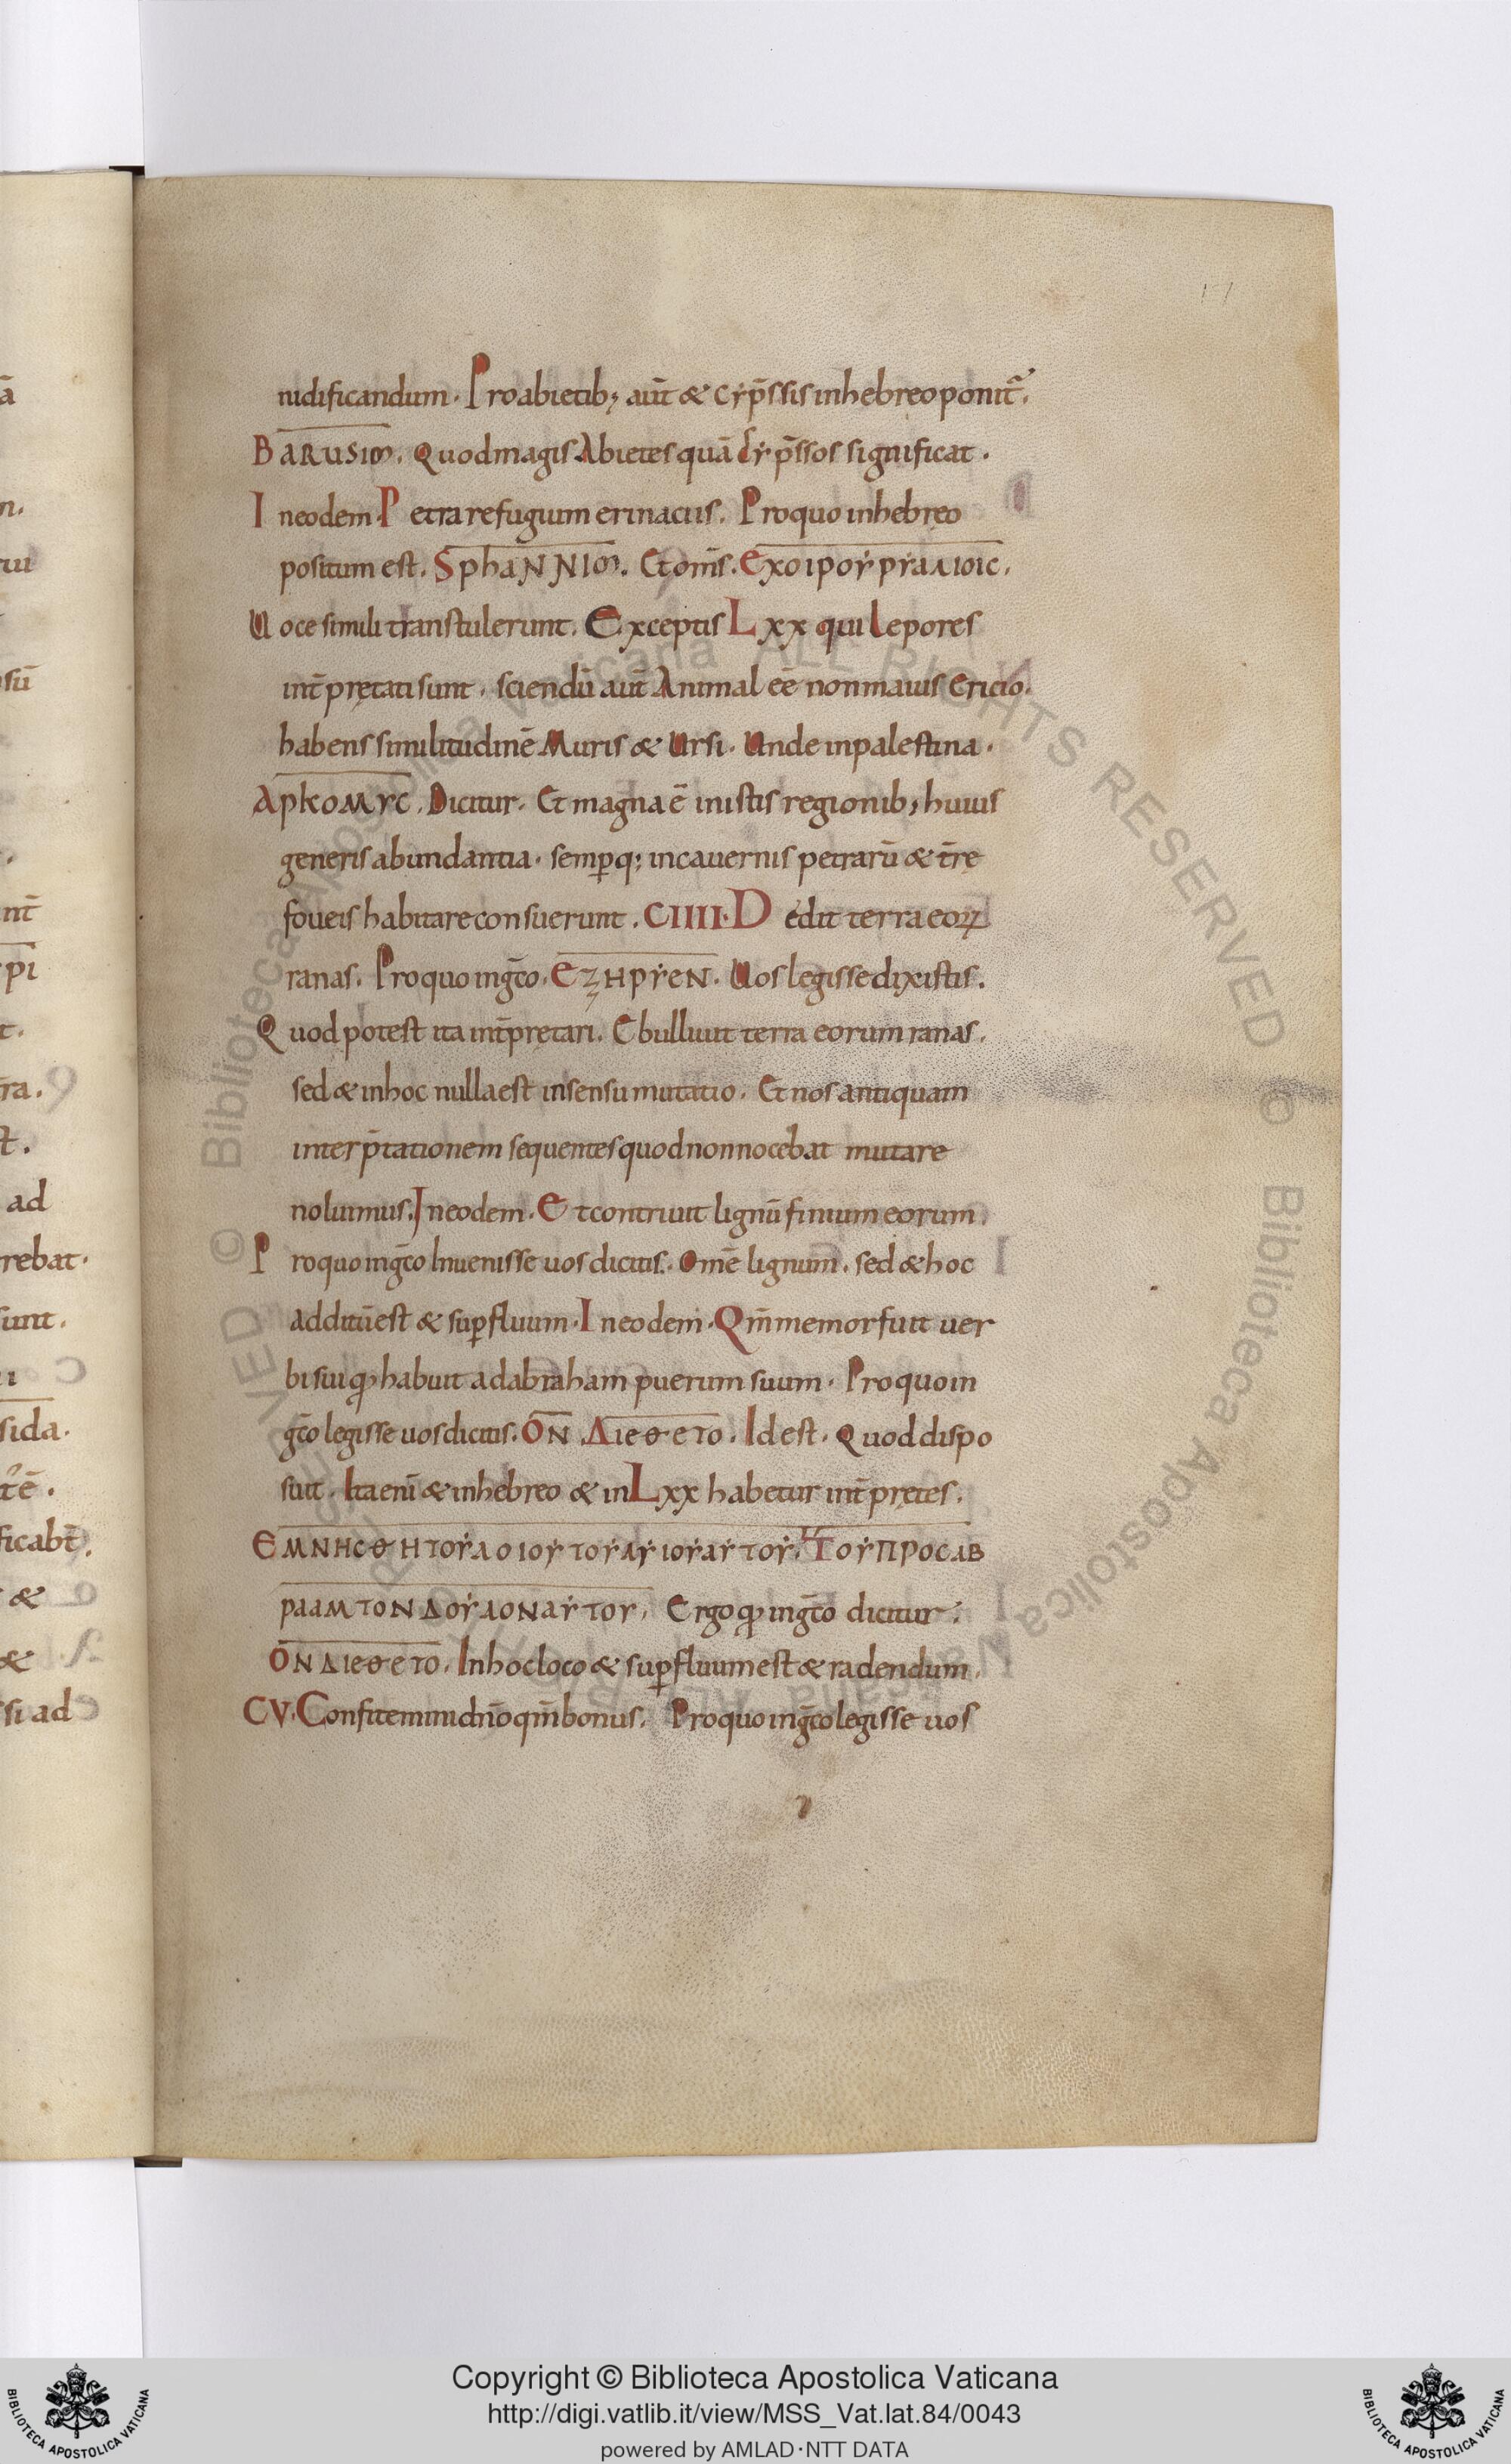 nidificandum. Pro abietib; aūt & cẏp̄ssis in hebreo ponit̄.
BARUSIM. Quod magis Abietes quā cẏp̄ssos significat.
In eodem. Petra refugium erinaciis. Pro quo in hebręo
positum est. SphaNNIM. Et om̄s. ЄxoιpoẏpẏaλιοιC.
Uoce simili transtulerunt. Exceptis Lxx qui lepores
int̄prętati sunt. sciendū aut̄ Animal eē non maius Ericio.
habens similitudinē Muris & Ursi. Unde in palestina.
ApκoMẏC. Dicitur. Et magna ē in istis regionib; huius
generis abundantia. semp̱q; in cauernis petrarū & t̄rę
foueis habitare consuerunt. CIIII. Dedit terra eoꝝ
ranas. Pro quo in gc̄o. ЄʒHpẏЄN. Uos legisse dixistis.
Quod potest ita int̄prętari. Ebulliuit terra eorum ranas.
sed & in hoc nulla est in sensu mutatio. Et nos antiquam
interp̄tationem sequentes quod non nocebat mutare
noluimus. In eodem. Et contriuit lignū finium eorum.
Pro quo in gc̄o Inuenisse uos dicitis. Omē lignum. sed & hoc
additū est & sup̱fluum. In eodem. Qm̄ memor fuit uer
bi sui qđ habuit ad abraham puerum suum. Pro quo in
gc̄o legisse uos dicitis. ON ΔιЄΘЄTO. Id est. Quod dispo
suit. Ita enī & in hebreo & in Lxx habetur int̄pretes.
ЄMNHCΘHTOẎΛOΙOẎTOẎΛẎΙOẎAẎTOẎ. TOẎΠPOCAB
PAAMTONΔOẎΛONAẎTOY. Ergo qđ in gc̄o dicitur.
ONΔιЄΘЄTO. In hoc loco & sup̱fluum est & radendum.
CV. Confitemini dn̄o qm̄ bonus. Pro quo in gc̄o legisse uos
Copyright © Biblioteca Apostolica Vaticana
http://digi.vatlib.it/view/MSS_Vat.lat.84/0043
powered by AMLAD·NTT DATA